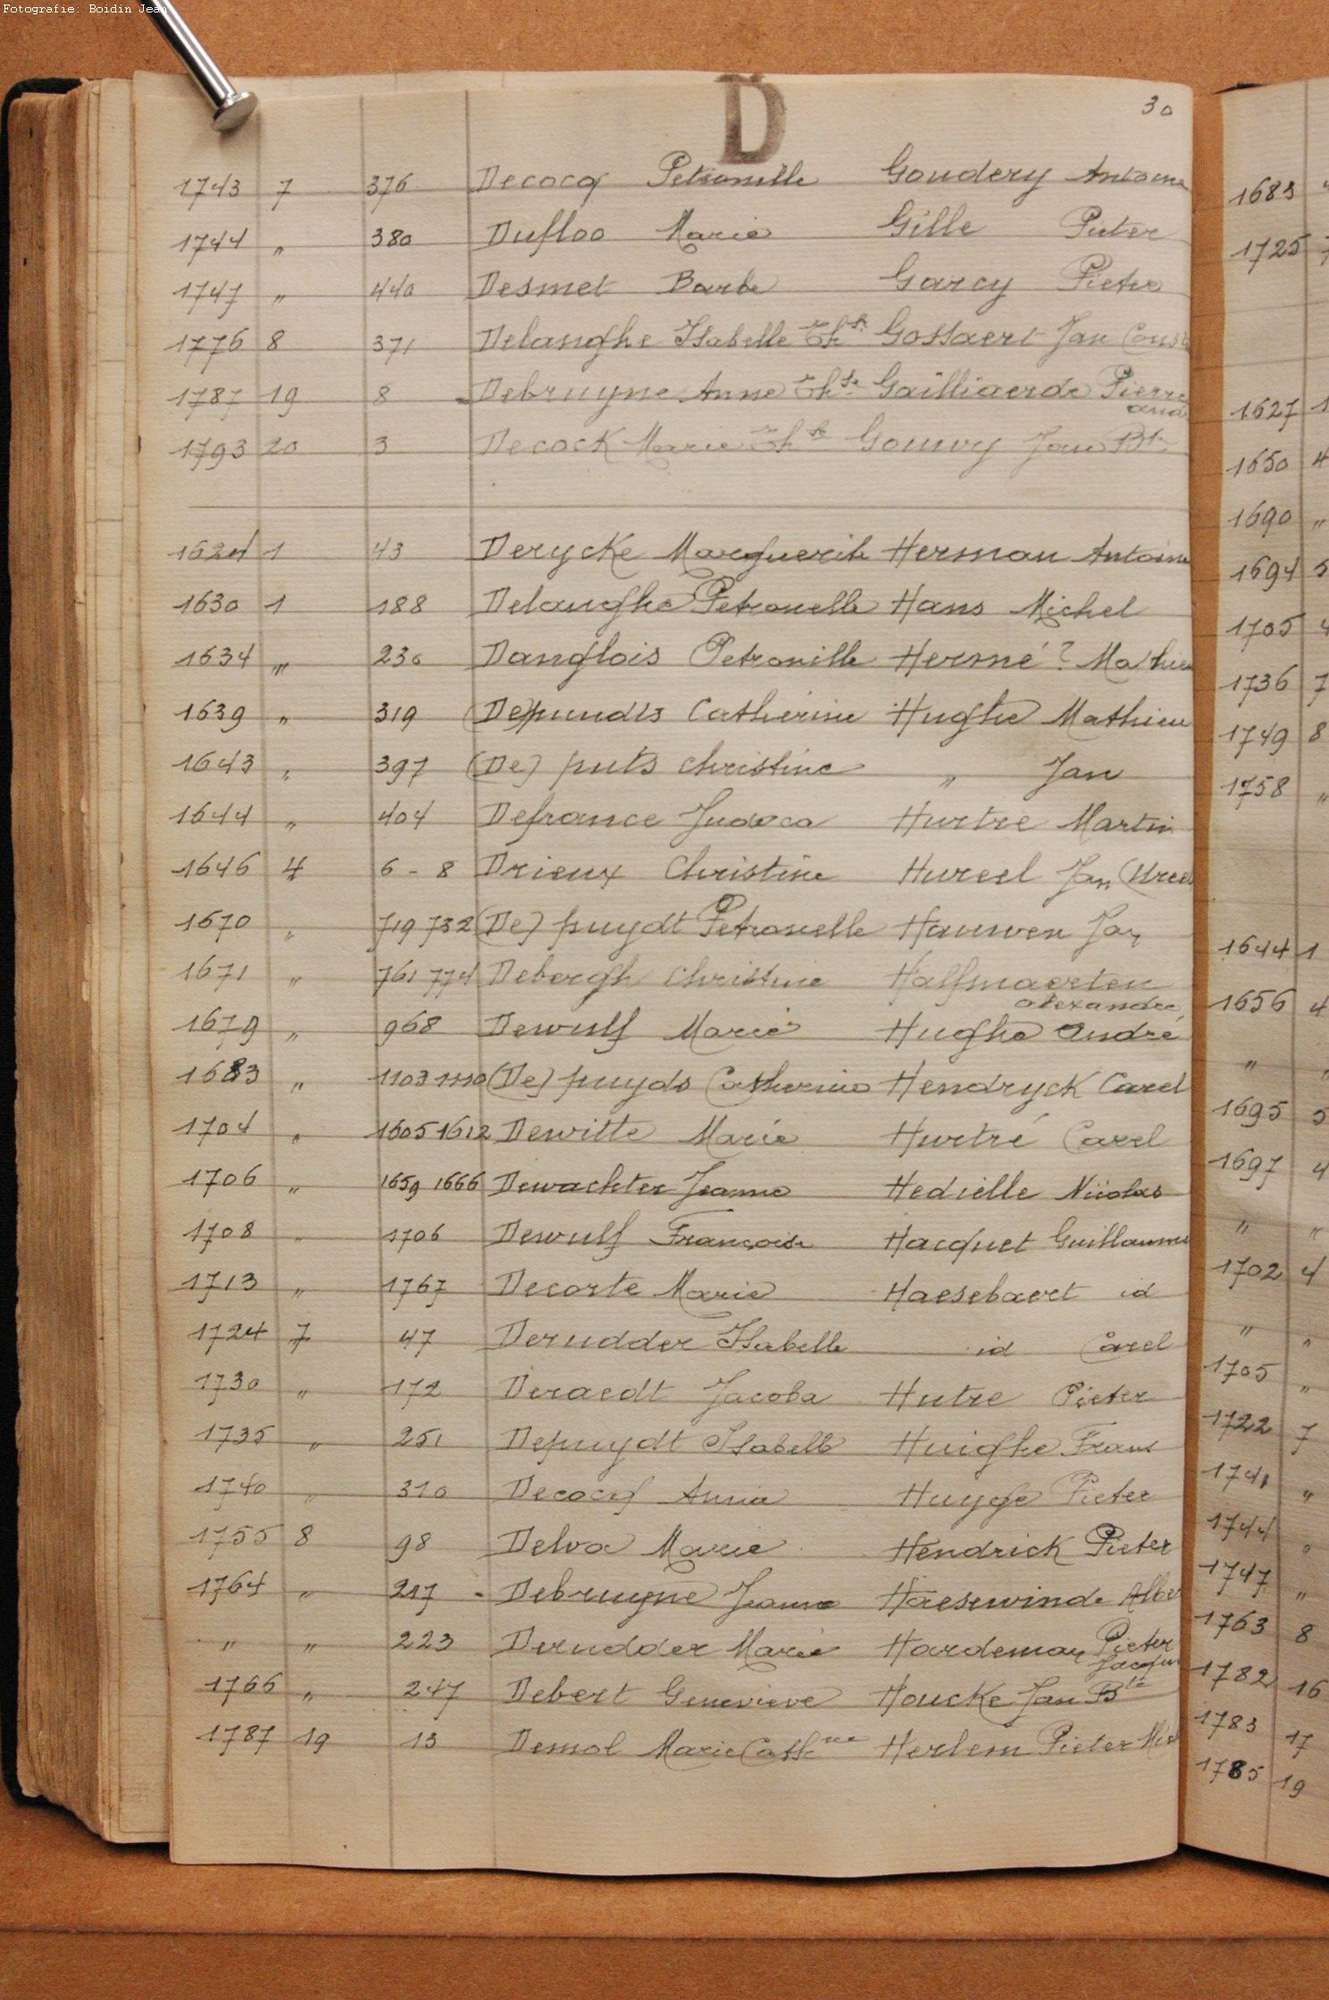 Fotografie: Boidin Jean
D
30
1743 7 376 Decocq Petronille Goudery Antoine
1744 " 380 Dufloo Marie Gille Pieter
1747 " 440 Desmet Barbe Garcy Pieter
1776 8 371 Delanghe Isabelle Thse Gossaert Jan Const
1787 19 8 Debruyne Anne Thse Gailliaerde Pierre
and
1793 20 3 Decock Marie Thse Gouwy Jan Bte
1624 1 43 Derycke Marguerite Herman Antoine
1630 1 188 Delanghe Petronelle Hans Michel
1634 " 230 Danglois Petronille Hermé? Mathieu
1639 " 319 (De)pundts Catherine Hughe Mathieu
1643 " 397 (De) puts Christine " Jan
1644 " 404 Defrance Judoca Hurtre Martin
1646 4 6-8 Drieux Christine Hureel Jan (Ureel
1670 " 719 732 (De) puydt Petronelle Hauwen Jan
1671 " 761 774 Debergh Christine Halfmaerten
alexandre
1679 " 968 Dewulf Marie Hughe André
1683 " 1103 1110 (De) puyds Catherine Hendryck Carel
1704 " 1605 1612 Dewitte Marie Hurtré Carel
1706 " 1659 1666 Dewachter Jeanne Hedielle Nicolas
1708 " 1706 Dewulf Françoise Hacquet Guillaume
1713 " 1767 Decorte Marie Haesebaert id
1724 7 47 Derudder Isabelle id Carel
1730 " 172 Deraedt Jacoba Hutre Pieter
1735 " 251 Depuydt Isabelle Huighe Frans
1740 " 310 Decocq Anna Huyghe Pieter
1755 8 98 Delva Marie Hendrick Pieter
1764 " 217 Debruyne Jeanne Haesewinde Albe
" " 223 Derudder Marie Hardeman Pieter
Jacques
1766 " 247 Debert Genevieve Houcke Jan Bte
1787 19 13 Demol Marie Cathne Herlem Pieter Mich
1683
1725 7
1627 1
1650 4
1690 "
1694 5
1705 4
1736 7
1749 8
1758 "
1644 1
1656 4
" "
1695 5
1697 4
" "
1702 4
" "
1705 "
1722 7
1741 "
1744 "
1747 "
1763 8
1782 16
1783 17
1785 19